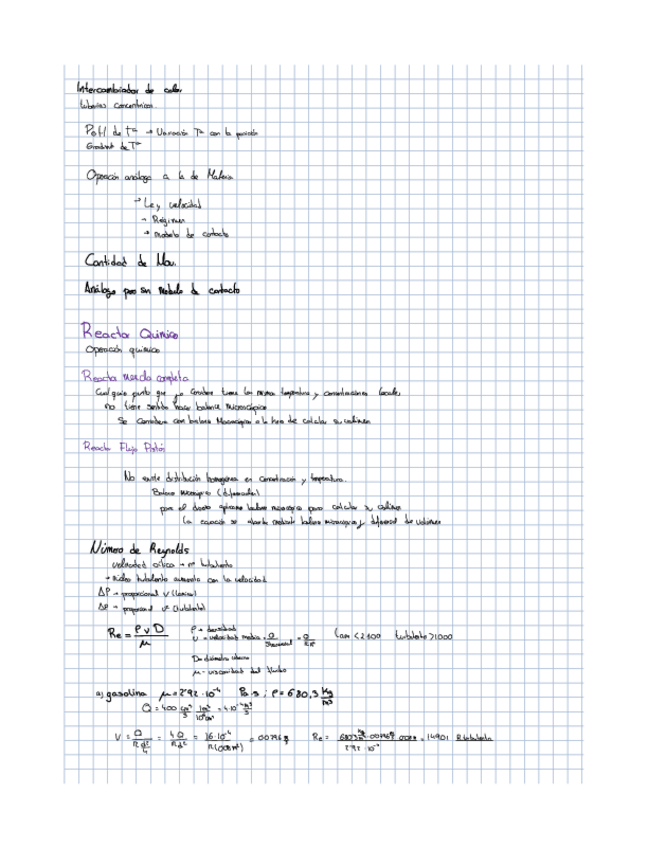 Intercambiador de calor
tuberías concéntricas.
Perfil de Tª → Variación Tª con la posición
Gradiente de Tª
Operación análoga a la de Materia
→ Ley velocidad
→ Régimen
→ modelo de contacto
Cantidad de Mov.
Análogo pero sin Modelo de contacto
Reactor Químico
Operación química
Reactor mezcla completa
Cualquier punto que yo considere tiene la misma temperatura y concentraciones locales,
no tiene sentido hacer balance microscópico
Se considera con balance Macroscópico a la hora de calcular su volumen
Reactor Flujo Pistón
No existe distribución homogénea en concentración y temperatura.
Balance microscópico (diferencial)
para el diseño balance microscópico para calcular su volumen
La ecuación se mediante balance microscópico y diferencial de volumen
Número de Reynolds
velocidad crítica → rº turbulento
→ turbulento aumenta con la velocidad
ΔP → proporcional v (laminar)
ΔP → proporcional v² (turbulento)
Re = ρ v D / μ
ρ = densidad
v = velocidad media = Q / S = Q / πr²
Lam < 2100 turbulento > 1000
D = diámetro
μ = viscosidad del fluido
a) gasolina μ = 2'92 · 10⁻⁴ Pa·s ; ρ = 680,3 kg/m³
Q = 400 cm³/s 1m³/10⁶cm³ = 4·10⁻⁴ m³/s
V = Q / π d²/4 = 4Q / πd² = 16·10⁻⁴
Re = = 14901 R. turbulento
2'92 · 10⁻⁴